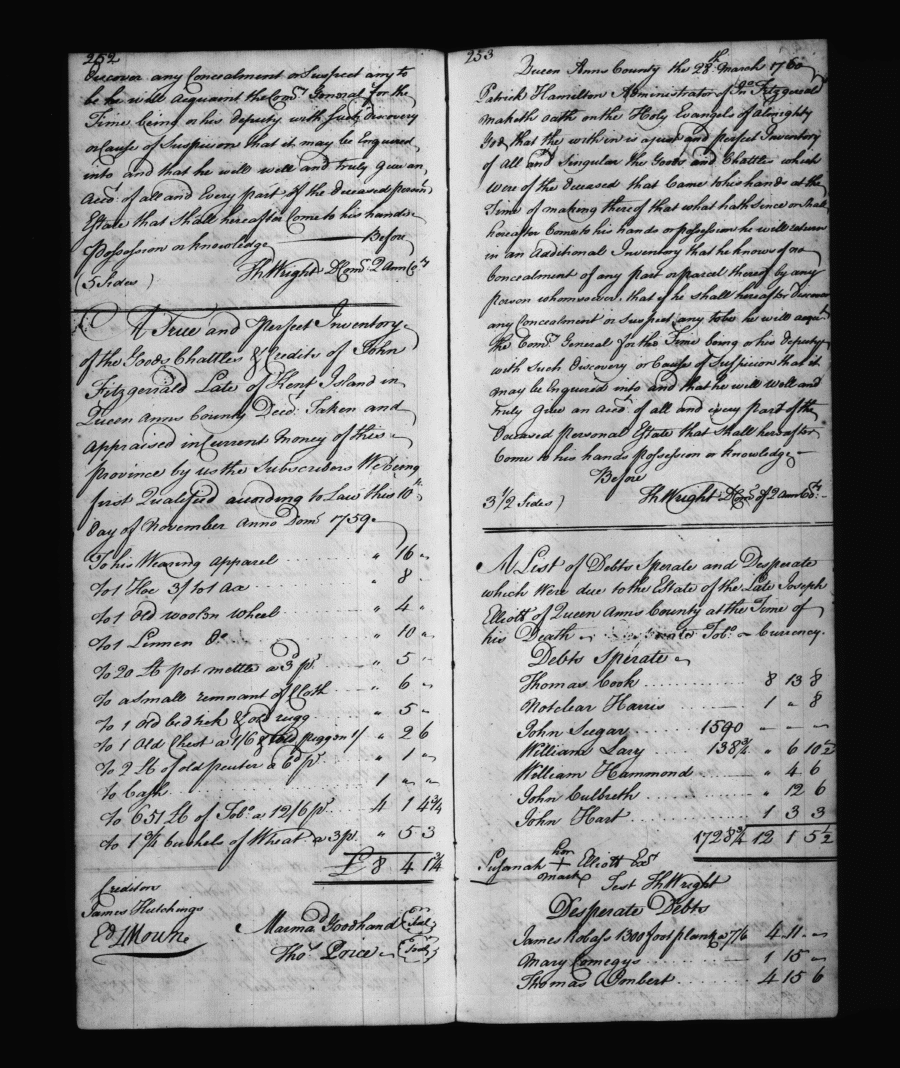 252
discover any Concealment or Suspect any to
be he will acquaint the Com.ʸ General for the
Time being or his deputy with such discovery
or Cause of Suspicion that it may be Enquired
into and that he will well and truly give an
Acc.ᵗ of all and Every part of the deceased person.ˡ
Estate that shall hereafter Come to his hands
Possession or knowledge Before
(5 Sides) Th Wright D Com.ʸ 2 Ann Co.ᵗʸ
A True and Perfect Inventory
of the Goods Chattles & Credits of John
Fitzgerrald Late of Kent Island in
Queen Anns County Decd. Taken and
Appraised in Current money of this
province by us the Subscribers We being
first Qualified according to Law this 10.ᵗʰ
day of November Anno Dom.ⁱ 1759
To his Wearing apparel " 16 "
To 1 Hoe 3/ to 1 Ax " 8
To 1 Old woolen wheel " 4 "
To 1 Linnen D.º " 10 "
To 20 lb pot mettle a 3.ᵈ p.ʳ " 5 "
To a small remnant of Cloth " 6 "
To 1 Old bed tick & old rugg " 5 "
To 1 Old Chest a 1/6 & Old piggon 1/ " 2 6
To 2 lb of old peuter a 6.ᵈ p.ʳ " 1 "
To Cash 1 " "
To 651 lb of Tob.º a 12/6 p.ʳ 4 1 4¾
To 1¾ bushels of Wheat a 3 p. " 5 3
£ 8 4 1¾
Creditors
James Hutchings
Ed
Marma.ᵈ Goodhand (Seal)
Tho.ˢ Price (Seal)
253
Queen Anns County the 28.ᵗʰ March 1760
Patrick Hamilton Administrator of Jn.º Fitzgerald
maketh oath on the Holy Evangels of Almighty
God that the within is a just and perfect Inventory
of All and Singular the Goods and Chattles which
were of the deceased that Came to his hands at the
Time of making thereof that what hath since or shall
hereafter Come to his hands or possession he will return
in an Additional Inventory that he knows of no
Concealment of any part or parcel thereof by any
person whomsoever, that if he shall hereafter discover
any Concealment or Suspect any to be he will acqu.ᵗ
the Com.ʸ General for the Time being or his deputy
with Such discovery or Cause of Suspicion that it
may be Enquired into and that he will well and
truly give an Acc.ᵗ of all and every part of the
Deceased personal Estate that shall hereafter
Come to his hands Possession or knowledge
Before
3 1/2 Sides) Th Wright D Com.ʸ of 2 Ann Co.ᵗʸ
A List of Debts Sperate and Desperate
which Were due to the Estate of the Late Joseph
Elliott of Queen Anns County at the Time of
his Death Tob.º Currency
Debts Sperate
Thomas Cook 8 13 8
Notclear Harris 1 " 8
John Sugar 1590 " "
Williams Lary 138¾ " 6 10½
William Hammond " 4 6
John Culbreth " 12 6
John Hart 1 3 3
1728¾ 12 1 5½
Susanah her + mark Elliott Ex.ˣ
Test Th Wright
Desperate Debts
James Robass 1300 foot plank a 7/6 4 11 "
Mary Comegys 1 15 "
Thomas Bombert 4 15 6